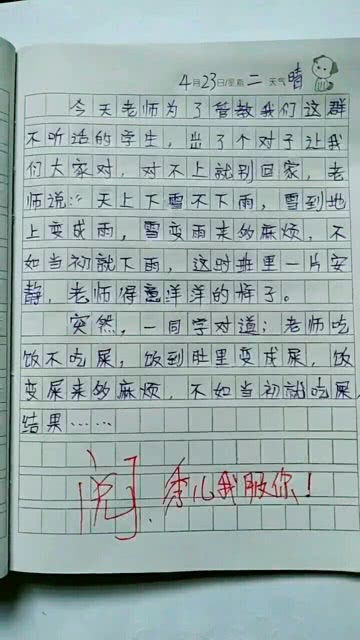 4月23日/星期二 天气晴
今天老师为了管教我们这群
不听话的学生，出了个对子让我
们大家对，对不上就别回家，老
师说：天上下雪不下雨，雪到地
上变成雨，雪变雨来的麻烦，不
如当初就下雨，这时班里一片安
静，老师得意洋洋的样子。
突然，一同学对道：老师吃
饭不吃屎，饭到肚里变成屎，饭
变屎来的麻烦，不如当初就吃屎
结果……
阅.李儿我服你！